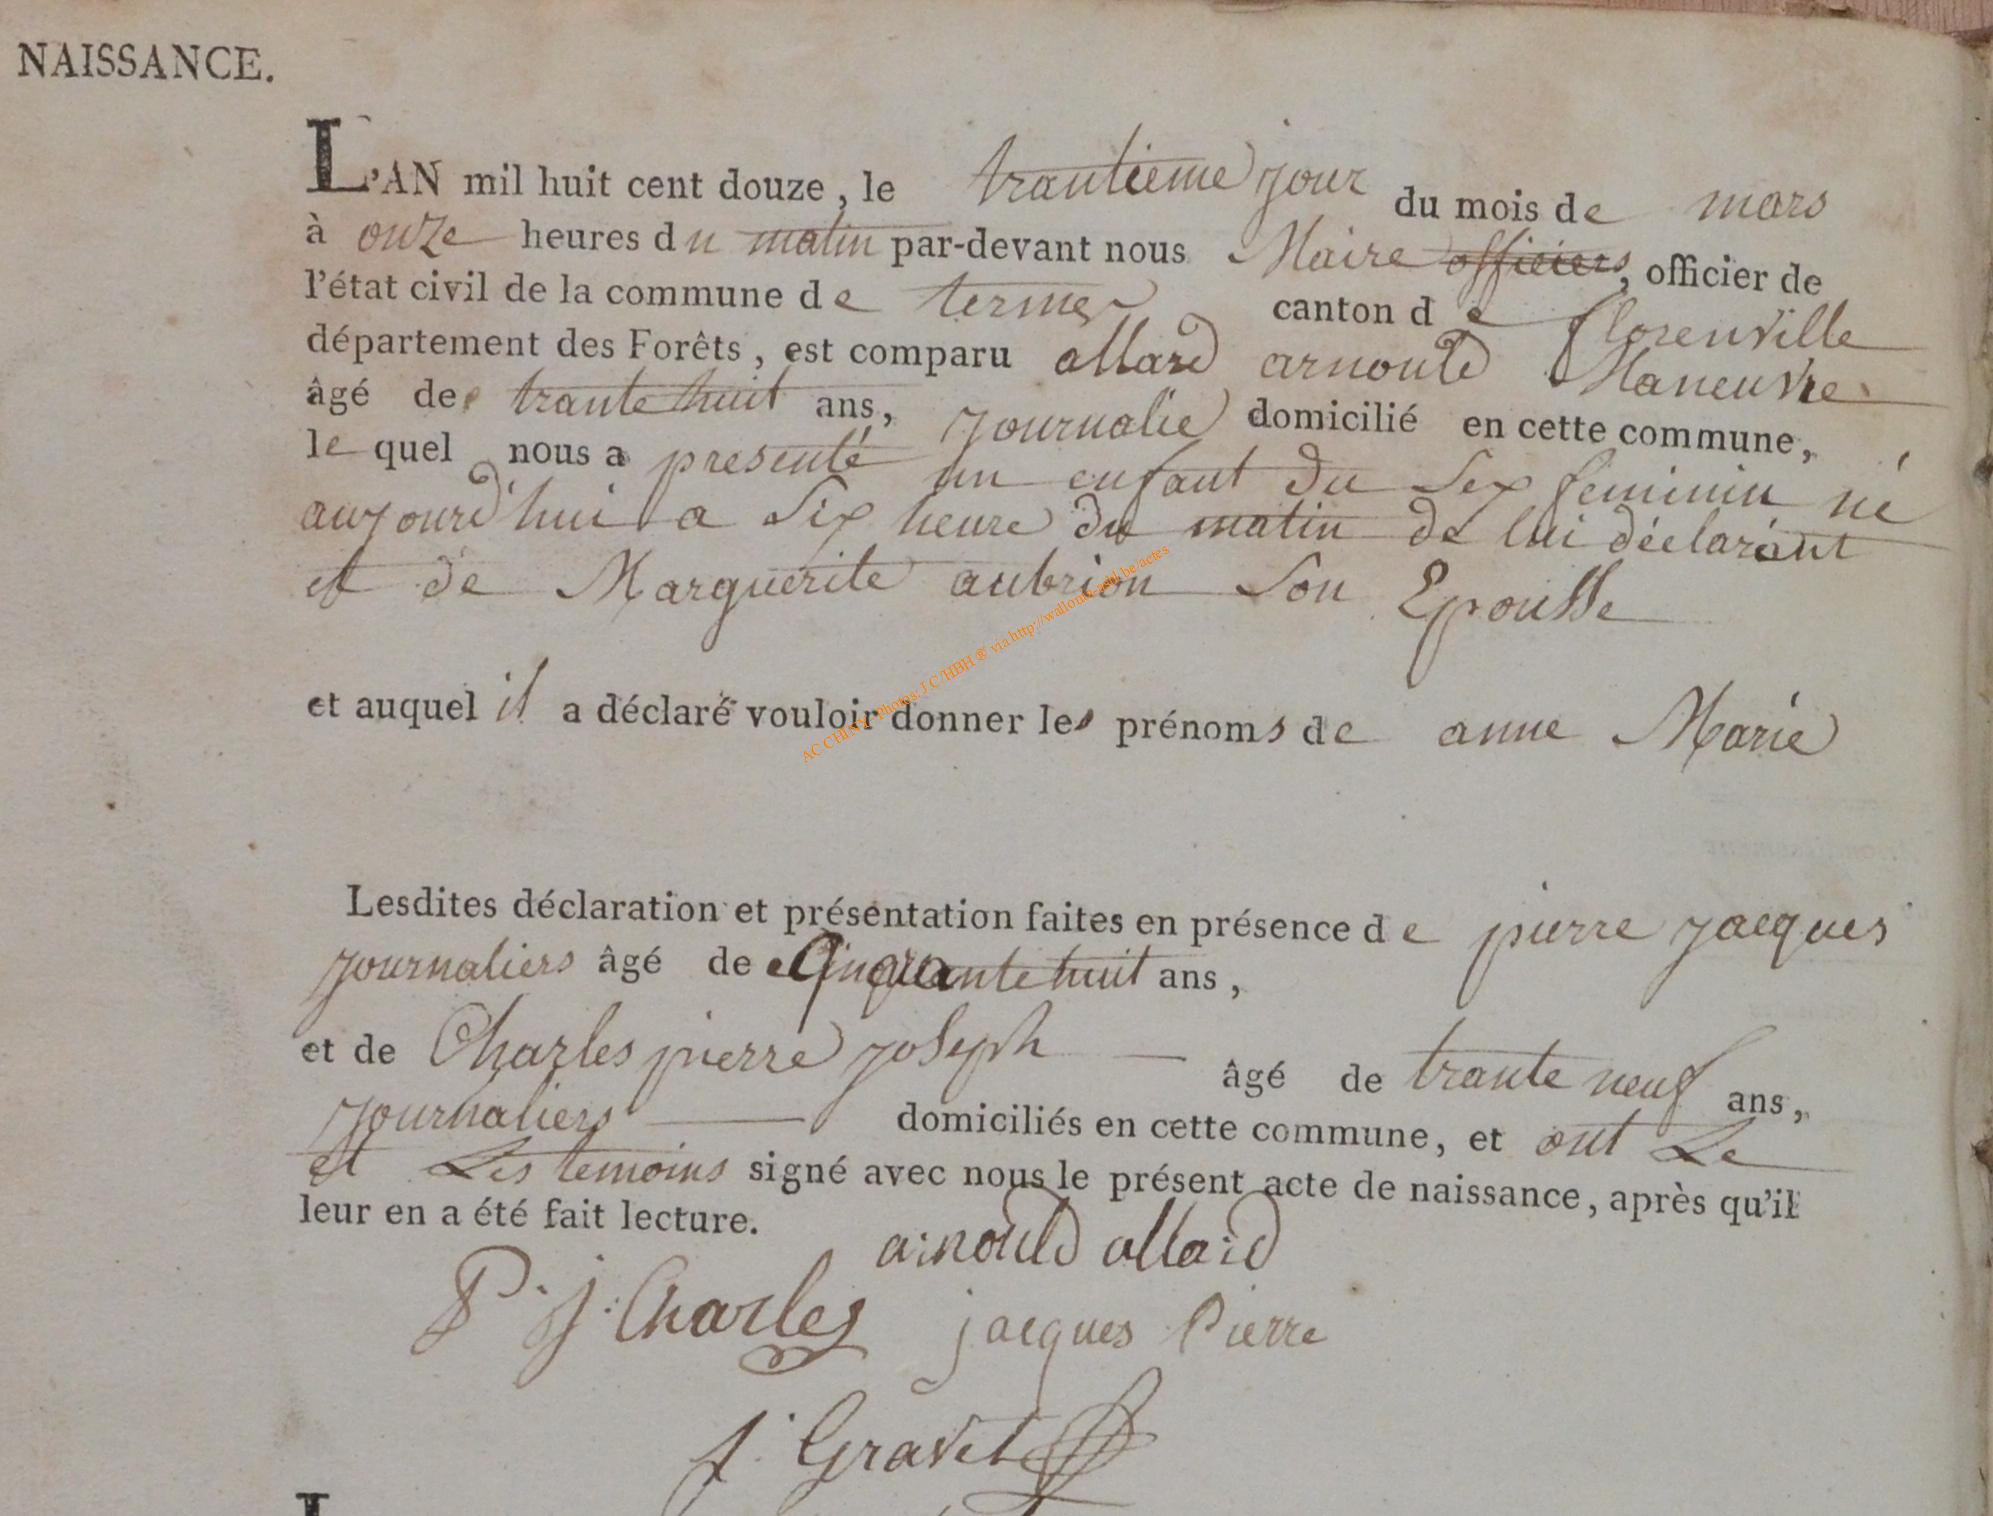 NAISSANCE.
L'AN mil huit cent douze, le trantieme jour du mois de mars
à onze heures du matin par-devant nous Maire officiers, officier de
l'état civil de la commune de termes canton de florenville
département des Forêts, est comparu allard arnould Maneuvre
âgé de trante huit ans, journalie domicilié en cette commune,
le quel nous a presenté un enfant du Sex feminin né
aujourd'hui a Six heure du matin de lui déclarant
et de Marguerite aubrion Son Epousse
et auquel il a déclaré vouloir donner les prénoms de anne Marie
Lesdites déclaration et présentation faites en présence de pierre jacques
journaliers âgé de Cinquante huit ans,
et de Charles pierre joseph âgé de trante neuf ans,
journaliers domiciliés en cette commune, et ont Le
et Les temoins signé avec nous le présent acte de naissance, après qu'il
leur en a été fait lecture.
arnould allard
P. j: Charles jacques Pierre
j. Gravet
L
AC CHINY - Photos J C/HBH @ via http://wallonia-asbl.be/actes